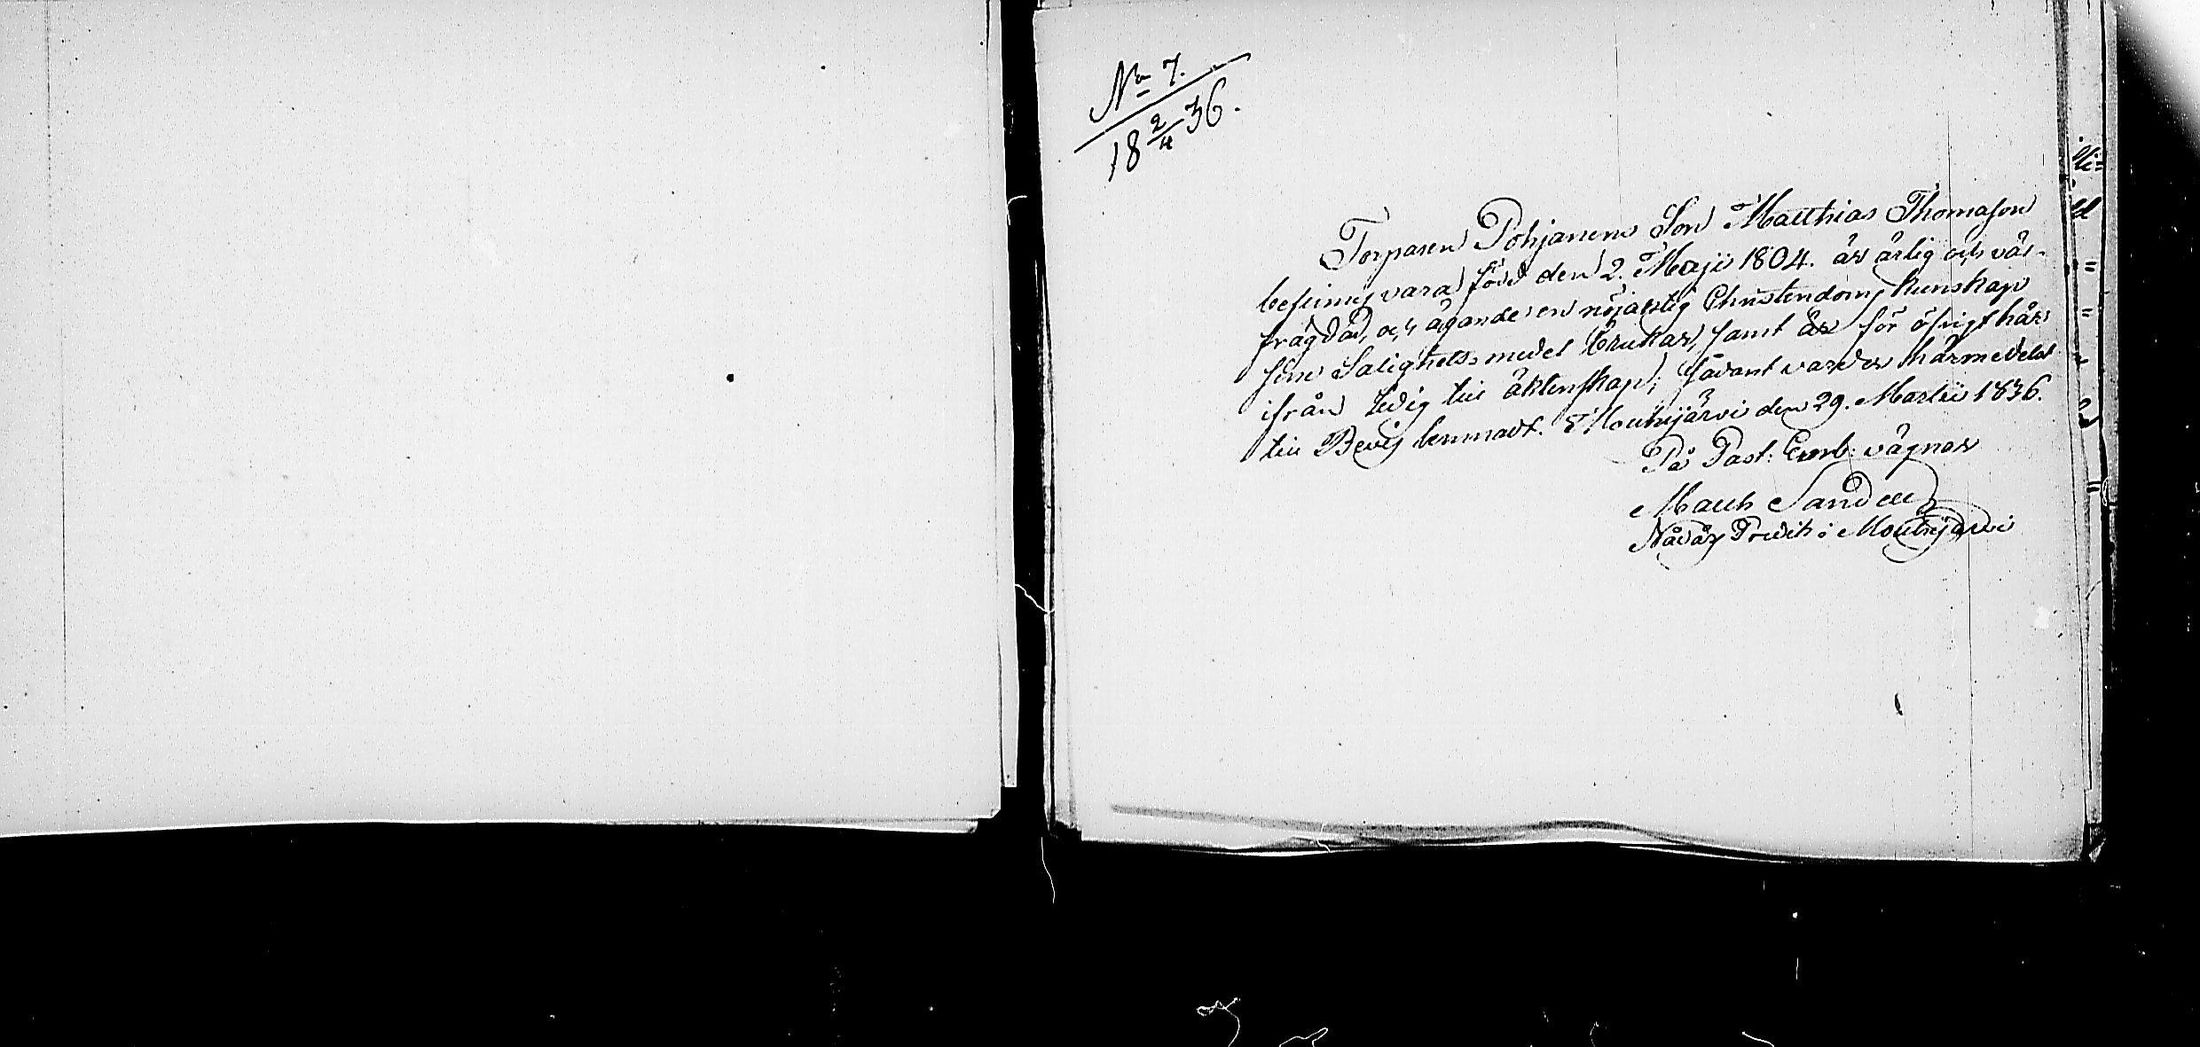 No 7.
18 2/4 36.
Torparen Pohjanens Son Matthias Thomason
befinnes vara föde den 2. Maji 1804. är ärlig och väl-
frägdad, och ägande en nöjaktig Christendoms kunskap
sine Salighets-medel brukar, samt är för öfrigt här
ifrån ledig till äktenskap; sådant varder härmedelst
till Bevis lemnadt. Mouhijärvi den 29. Martii 1836.
På Past: Emb: vägnar
Math Sandell
Nådårs Predik: i Mouhijärvi